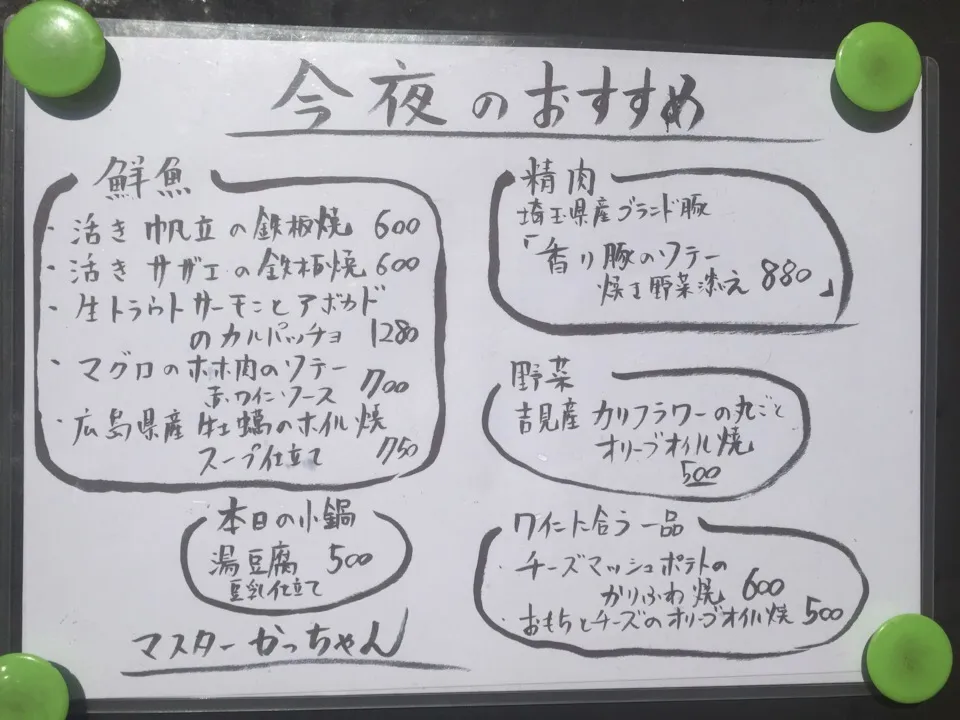 今夜のおすすめ
鮮魚
・活き帆立の鉄板焼 600
・活きサザエの鉄板焼 600
・生トラウトサーモンとアボカド
のカルパッチョ 1280
・マグロのホホ肉のソテー
赤ワインソース 700
・広島県産牡蠣のホイル焼
スープ仕立て 750
本日の小鍋
湯豆腐 500
豆乳仕立て
マスターかっちゃん
精肉
埼玉県産ブランド豚
「香り豚のソテー
焼き野菜添え 880」
野菜
吉見産カリフラワーの丸ごと
オリーブオイル焼
500
ワインに合う一品
・チーズマッシュポテトの
かりふわ焼 600
・おもちとチーズのオリーブオイル焼 500